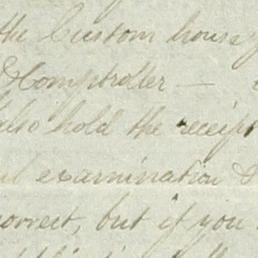 the Custom house
& Comptroller —
also hold the receipt
examination &
correct, but if you